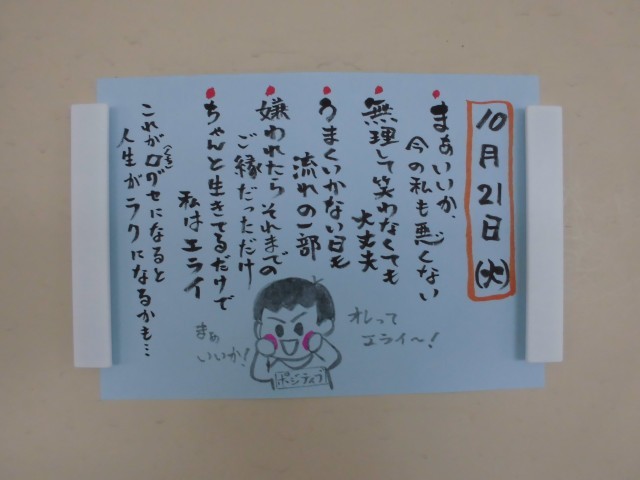 10月21日(火)
まあいいか、
今の私も悪くない
無理して笑わなくても
大丈夫
うまくいかない日も
流れの一部
嫌われたら それまでの
ご縁だっただけ
ちゃんと生きてるだけで
私はエライ
これが口グセになると
人生がラクになるかも…
オレって
エライ〜!
まぁ
いいか!
ポジティブ